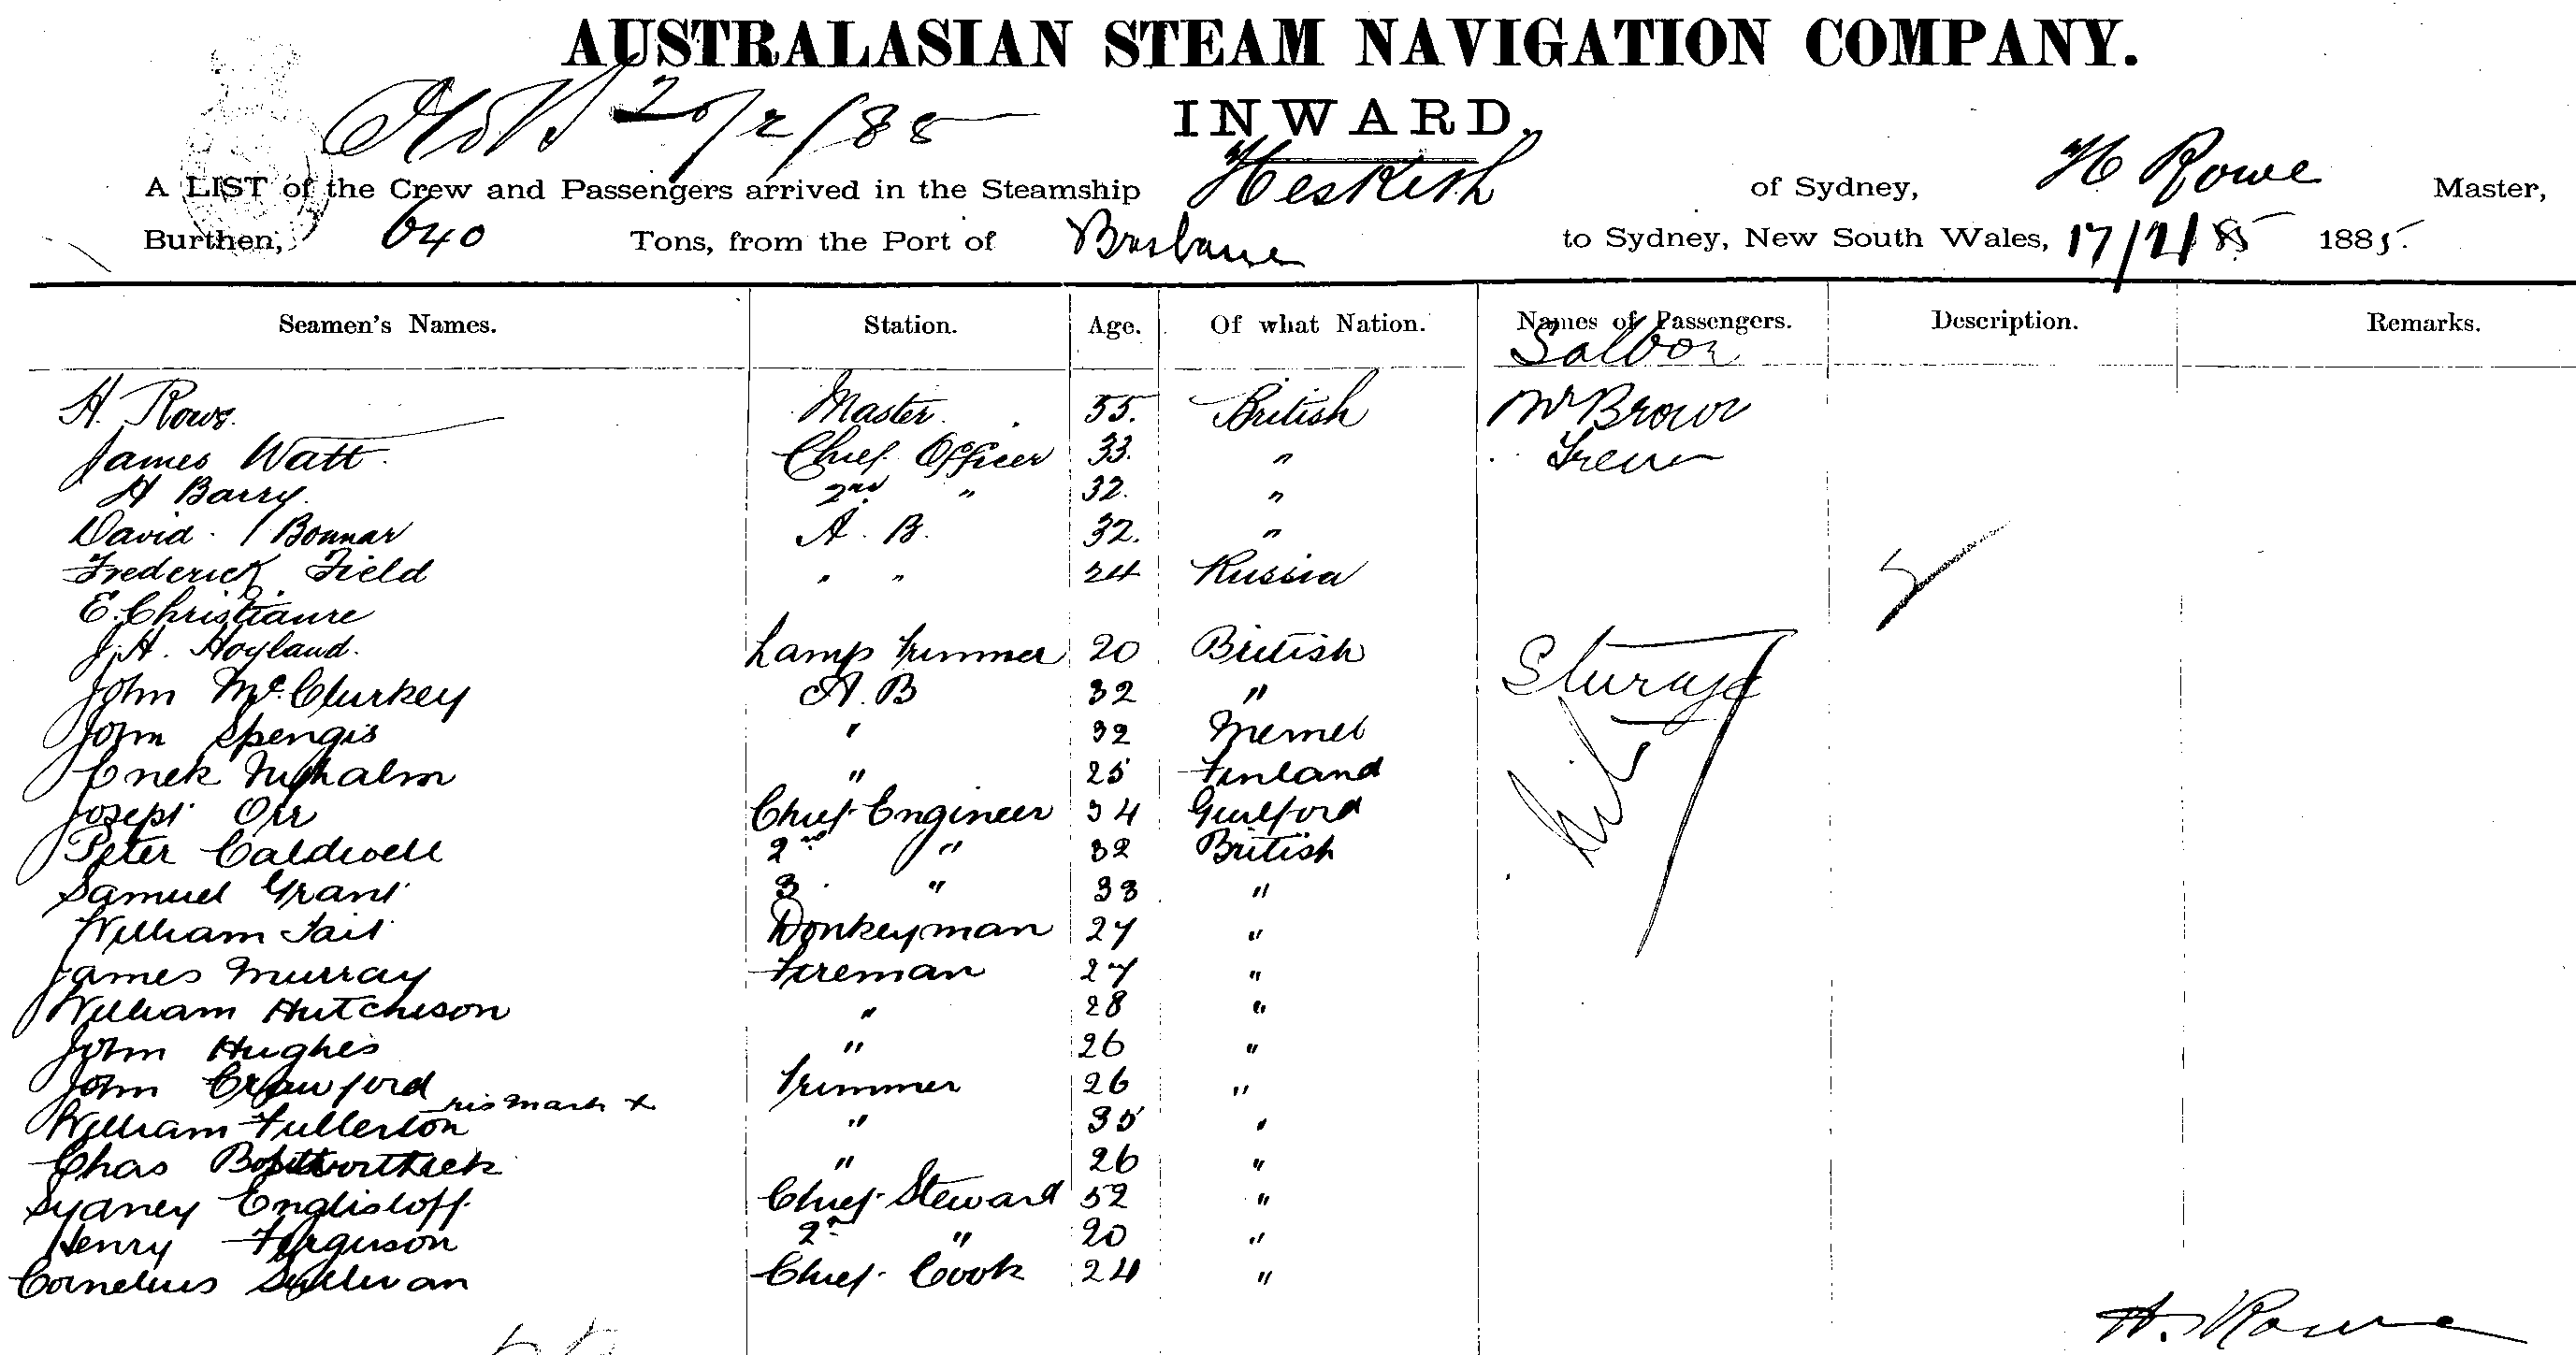 AUSTRALASIAN STEAM NAVIGATION COMPANY.
20/2/85
INWARD.
A LIST of the Crew and Passengers arrived in the Steamship Hesketh of Sydney, H Rowe Master,
Burthen, 640 Tons, from the Port of Brisbane to Sydney, New South Wales, 17/2/85 1885.
Seamen's Names. Station. Age. Of what Nation. Names of Passengers. Description. Remarks.
Saloon
H. Rowe. Master. 55. British Mr Brown
James Watt. Chief Officer 33. "
H Barry. 2nd " 32. "
David Bonnar A. B. 32. "
Frederick Field " " 24 Russia
E. Christianre
J. H. Hoyland. Lamp Trimmer 20 British
John McClurkey A. B 32 " Sturage
John Spengis " 32 Memel nil
" 25 Finland
Joseph Orr Chief Engineer 34 Guilford
Peter Caldwell 2nd " 32 British
Samuel Grant 3 " 33 "
William Tait Donkeyman 27 "
James Murray Fireman 27 "
William Hutcheson " 28 "
John Hughes " 26 "
John Crawford Trimmer 26 "
his mark x
William Fullerton " 35 "
Chas " 26 "
Sydney Englisloff Chief Steward 52 "
Henry Ferguson 2n " 20 "
Cornelius Sullivan Chief Cook 24 "
H. Rowe